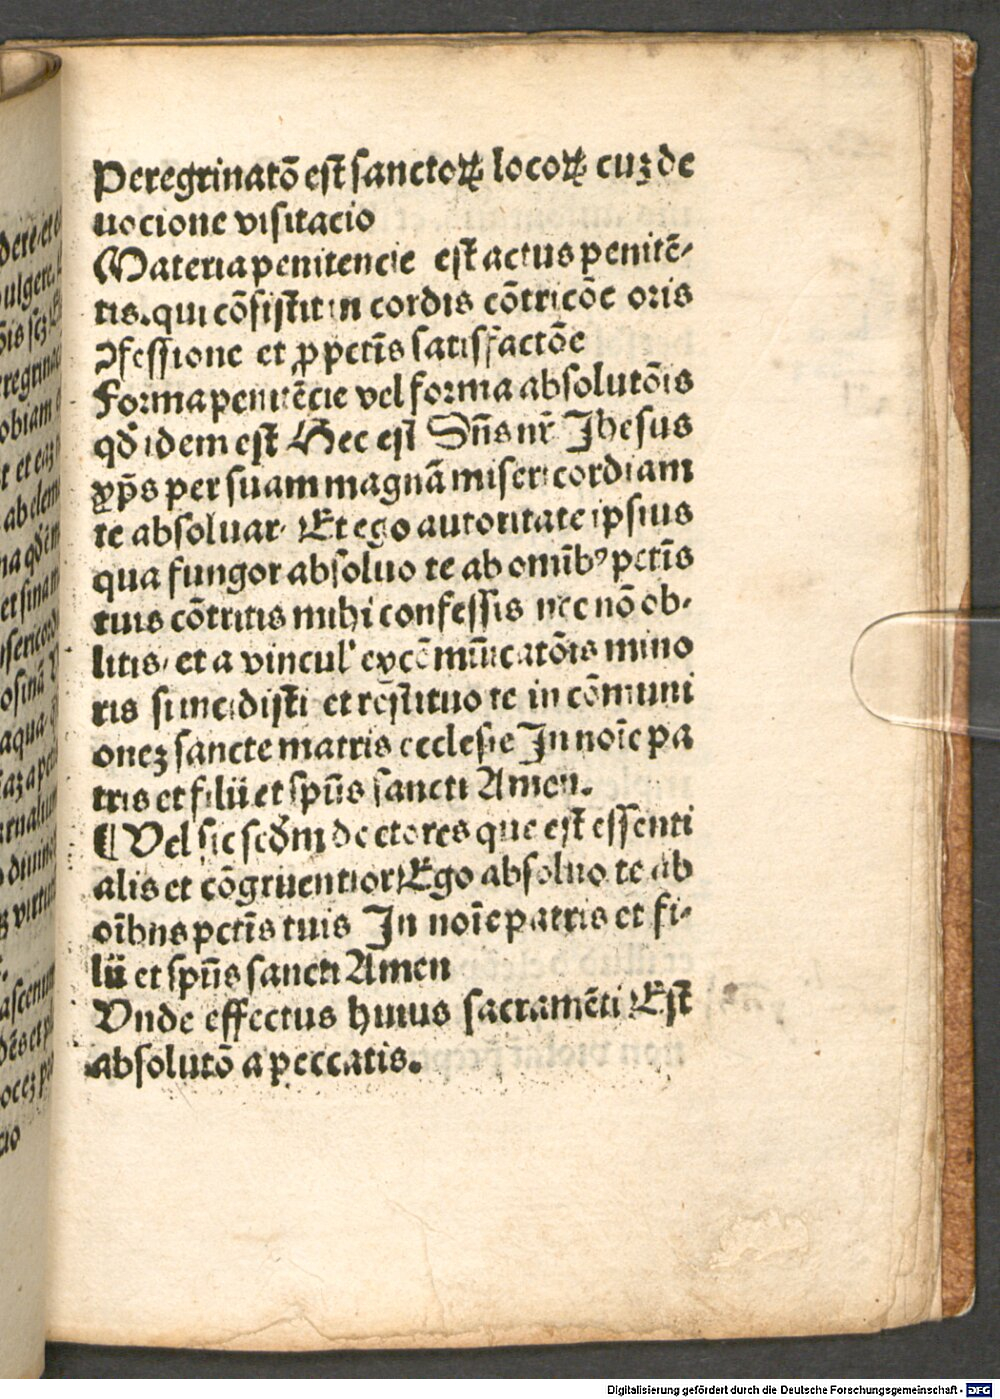 Peregrinatō est sanctoꝝ locoꝝ cuʒ de
uocione visitacio
Materia penitencie est actus penitē-
tis. qui cōsistit in cordis cōtricōe oris
ꝯfessione et ꝓ pctīs satisfactōe
Forma penitēcie vel forma absolutōis
qd̄ idem est Hec est Dn̄s nr̄ Jhesus
xp̄s per suam magnā misericordiam
te absoluat. Et ego autoritate ipsius
qua fungor absoluo te ab omībꝰ pctīs
tuis cōtritis mihi confessis nec nō ob-
litis, et a vincul' excōmūicatōis mino
ris si incidisti et restituo te in cōmuni
oneʒ sancte matris ecclesie In noīe pa
tris et filii et spūs sancti Amen.
¶ Vel sic scd̄m doctores que est essenti
alis et cōgruentior Ego absoluo te ab
oībus pctīs tuis In noīe patris et fi-
lii et spūs sancti Amen
Vnde effectus huius sacramēti Est
absolutō a peccatis.
Digitalisierung gefördert durch die Deutsche Forschungsgemeinschaft - DFG